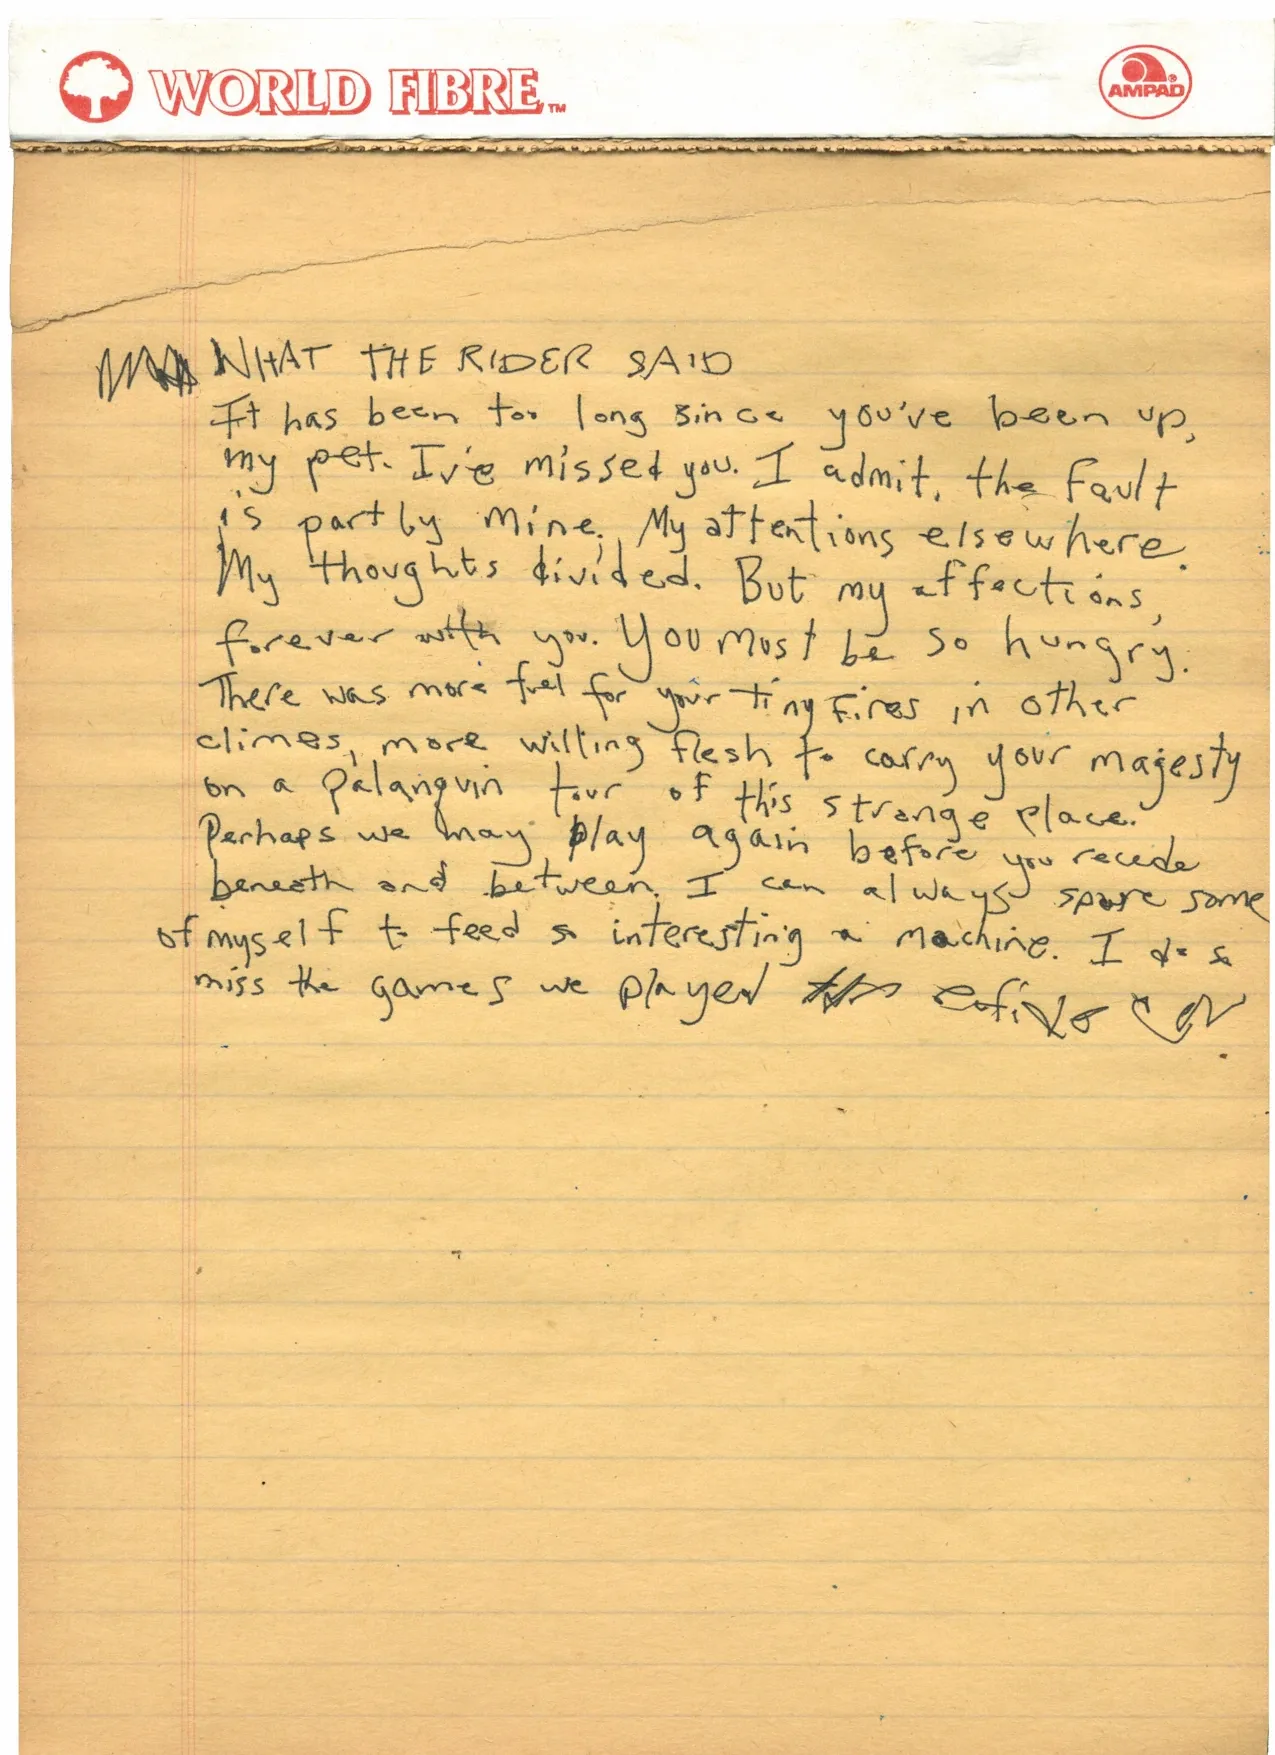 WORLD FIBRE™
AMPAD®
WHAT THE RIDER SAID
It has been too long since you've been up,
my pet. I've missed you. I admit, the fault
is partly mine. My attentions elsewhere.
My thoughts divided. But my affections,
forever with you. You must be so hungry.
There was more fuel for your tiny fires in other
climes, more willing flesh to carry your majesty
on a palanquin tour of this strange place.
Perhaps we may play again before you recede
beneath and between. I can always spare some
of myself to feed so interesting a machine. I do so
miss the games we played